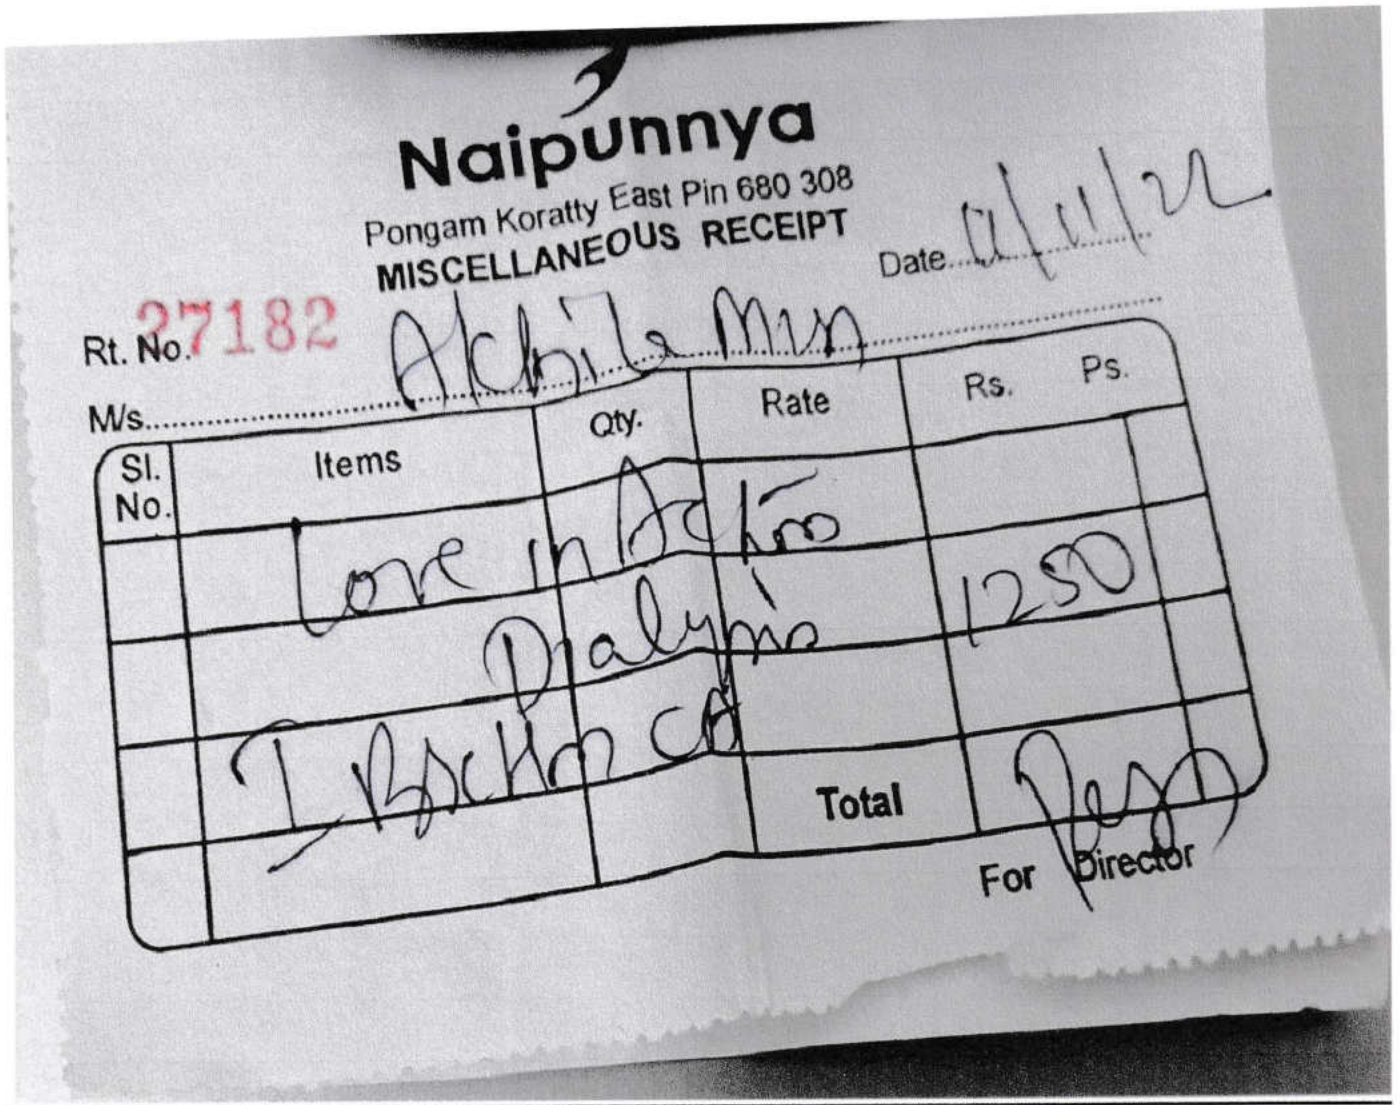 Naipunnya
Pongam Koratty East Pin 680 308
MISCELLANEOUS RECEIPT
Date
/11/22
Rt. No. 27182
M/s. Akhila
Sl. No. Items Qty. Rate Rs. Ps.
Love in Action
Dialysis 1250
I
Total
For Director